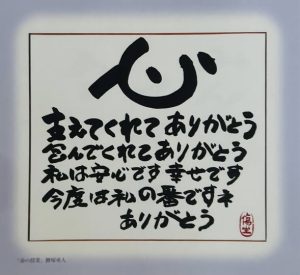 心
支えてくれてありがとう
包んでくれてありがとう
私は安心です幸せです
今度は私の番ですネ
ありがとう